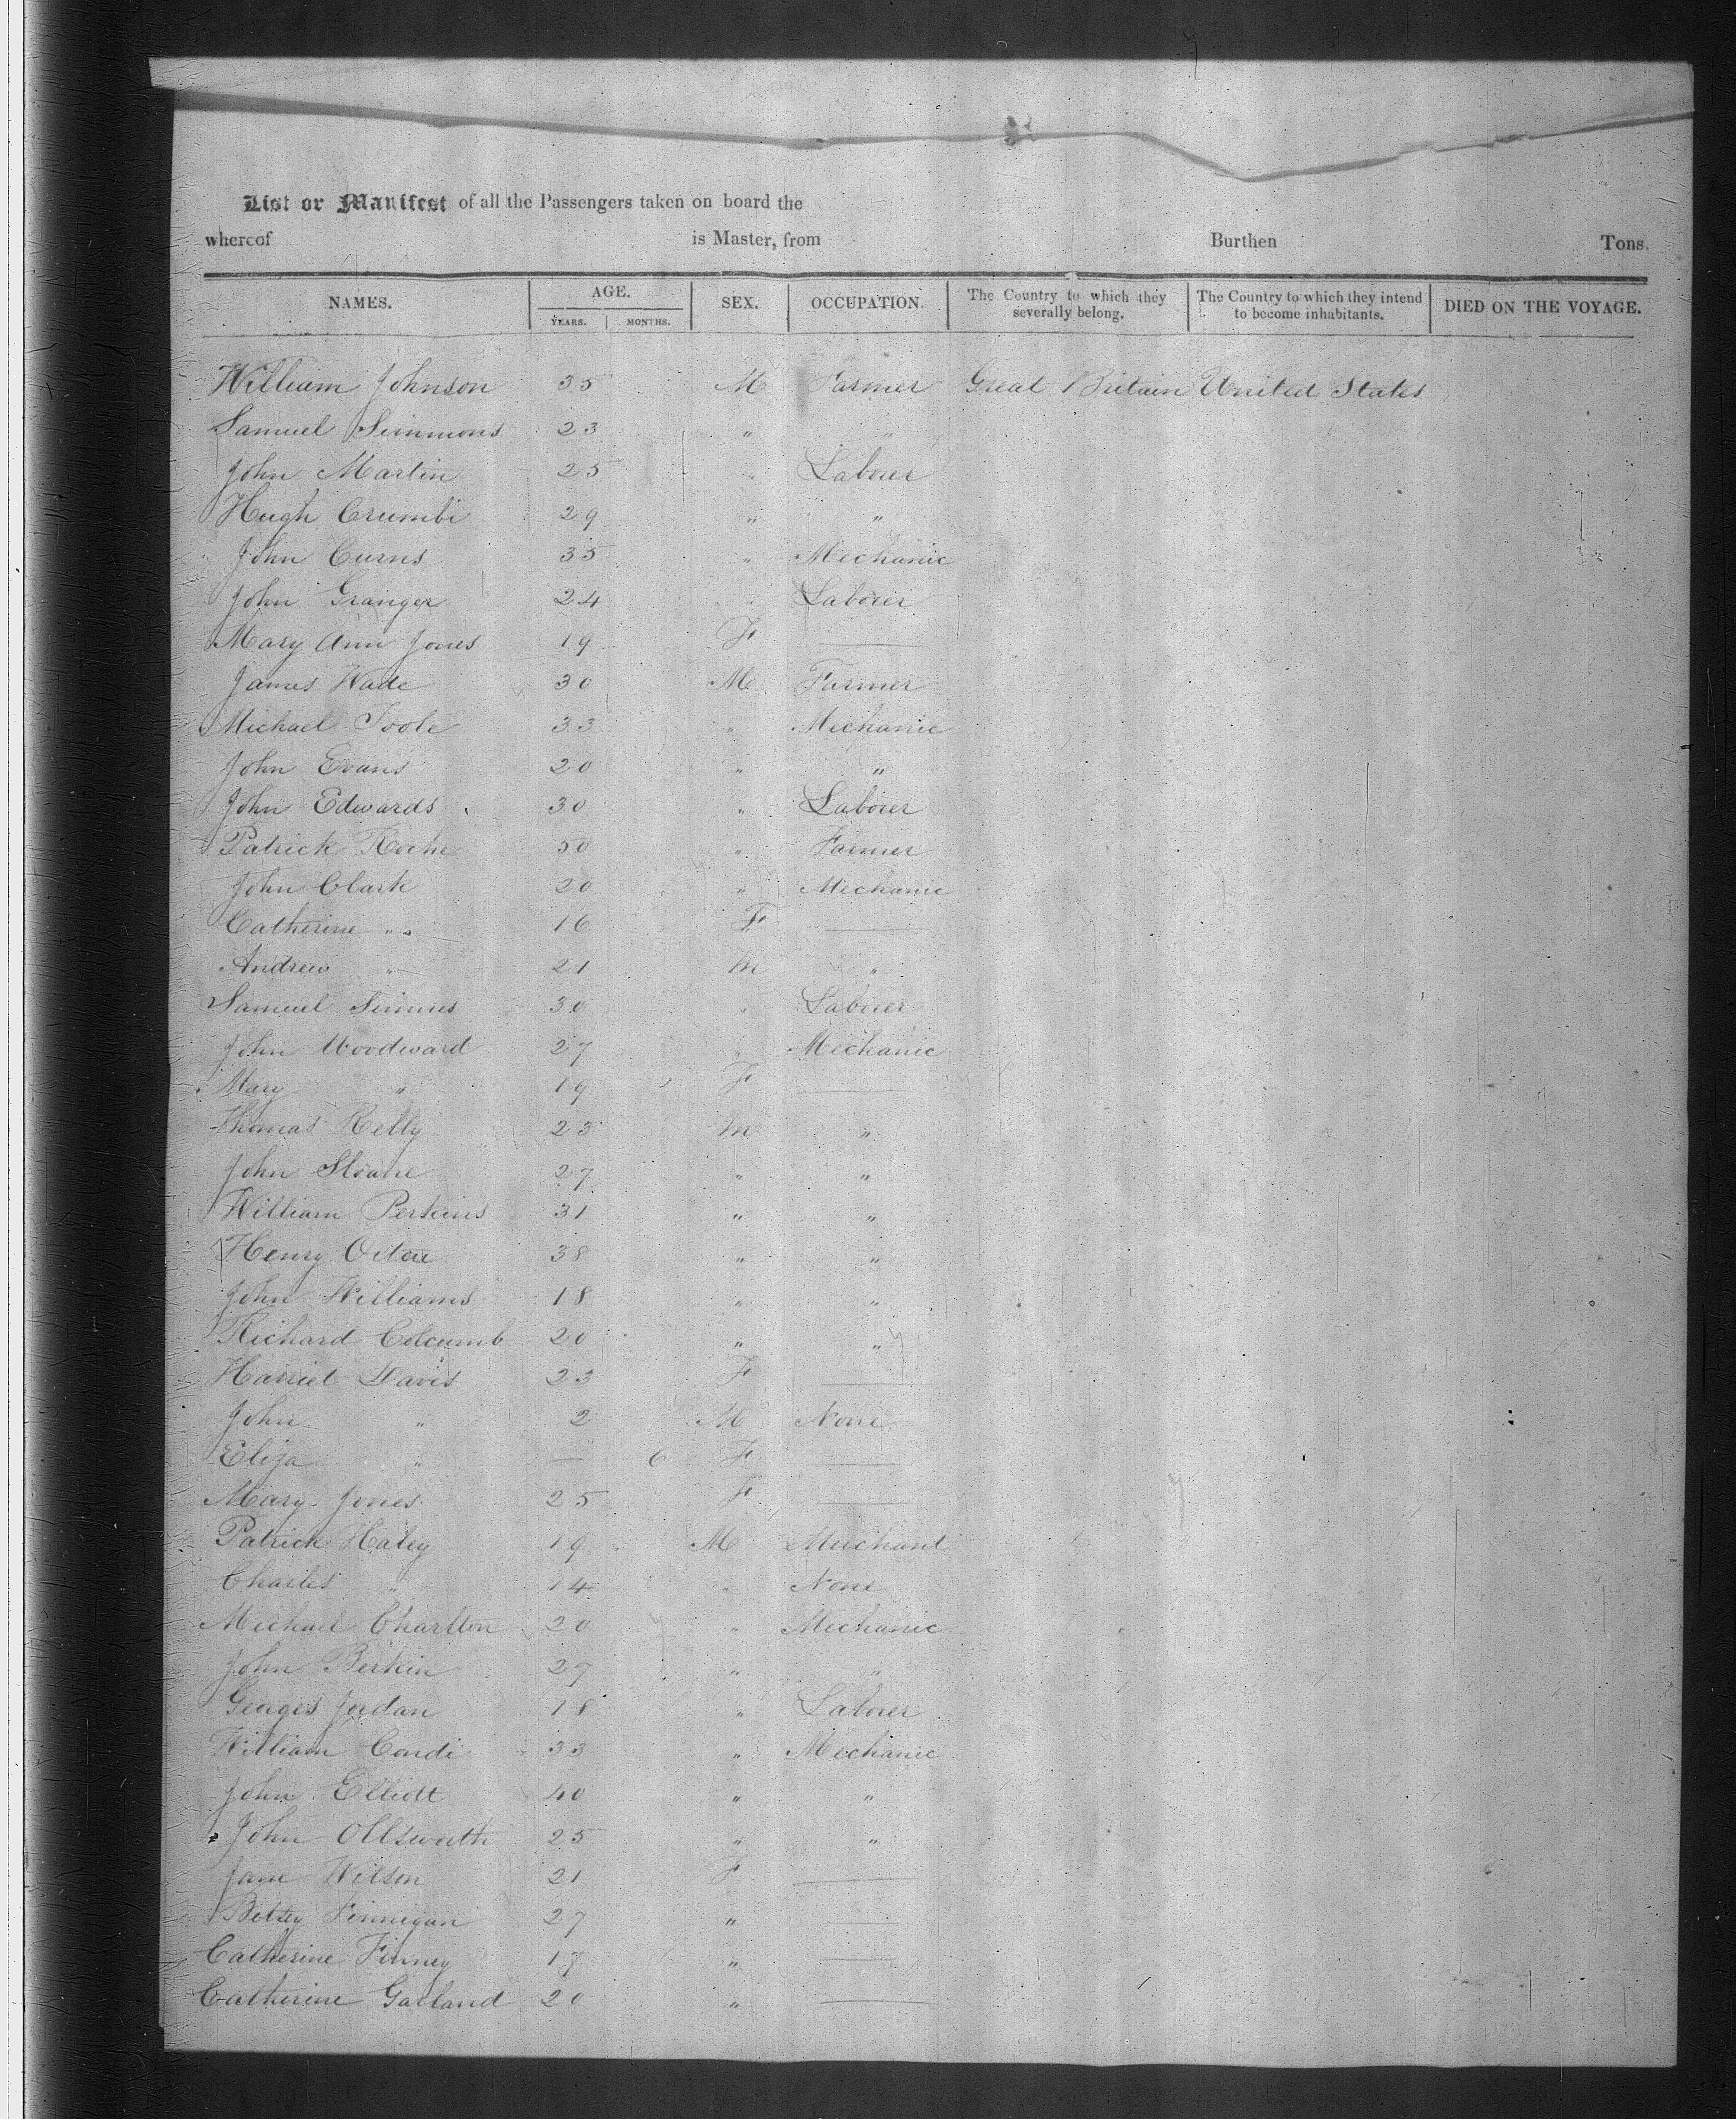 List or Manifest of all the Passengers taken on board the
whereof is Master, from Burthen Tons.
NAMES. AGE. YEARS. MONTHS. SEX. OCCUPATION. The Country to which they severally belong. The Country to which they intend to become inhabitants. DIED ON THE VOYAGE.
William Johnson 35 M Farmer Great Britain United States
Samuel Simmons 23 " "
John Martin 25 " Laborer
Hugh Crumbi 29 " "
John Curns 35 " Mechanic
John Granger 24 " Laborer
Mary Ann Jones 19 F —
James Wade 30 M Farmer
Michael Toole 33 " Mechanic
John Evans 20 " "
John Edwards 30 " Laborer
Patrick Roche 50 " Farmer
John Clark 20 " Mechanic
Catherine " 16 F —
Andrew " 21 M "
Samuel Simms 30 " Laborer
John Woodward 27 " Mechanic
Mary " 19 F —
Thomas Kelly 23 M "
John Sloane 27 " "
William Perkins 31 " "
Henry 38 " "
John Williams 18 " "
Richard Colcumb 20 " "
Harriet Davis 23 F —
John " 2 M None
Eliza " — 6 F —
Mary Jones 25 F —
Patrick Haley 19 M Merchant
Charles " 14 " None
Michael Charlton 20 " Mechanic
John Berkin 27 " "
Georges Jordan 18 " Laborer
William Condi 33 " Mechanic
John Elliott 40 " "
John Ollsworth 25 " "
Jane Wilson 21 F —
Betsey Finnigan 27 " —
Catherine Finney 17 " —
Catherine Garland 20 " —